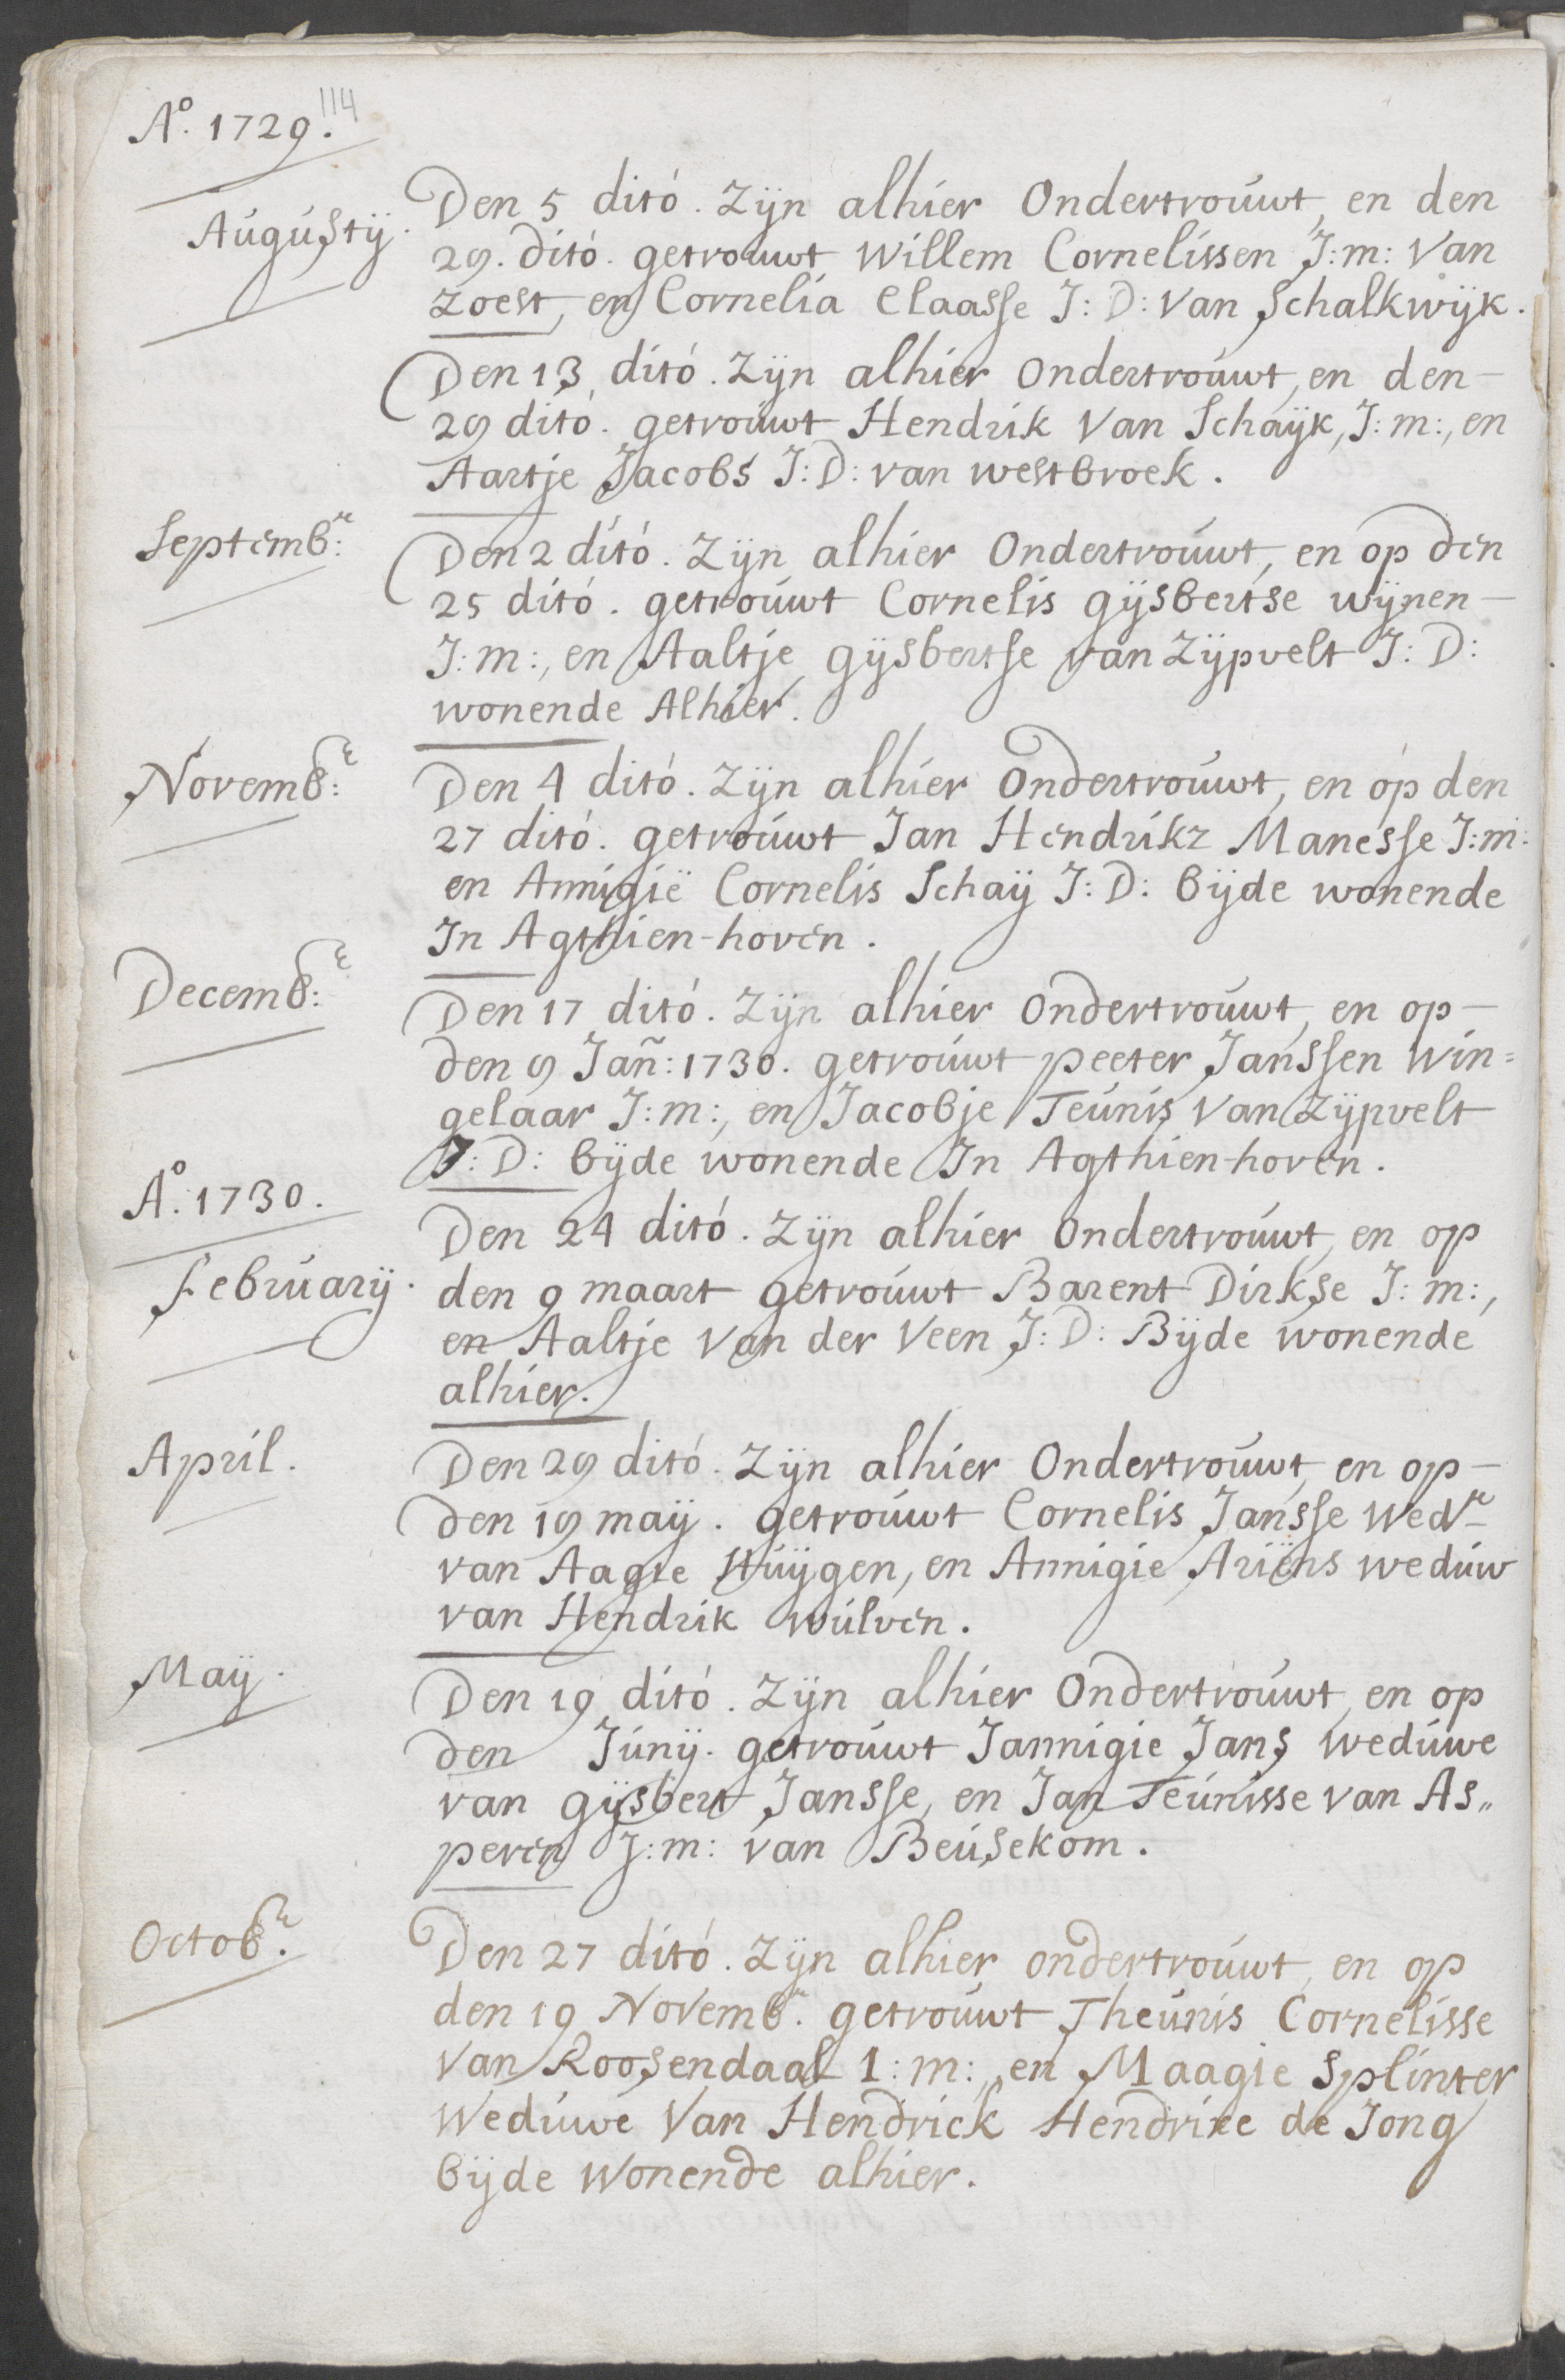 Aº. 1729.
114
Augustij.
Den 5 dito. Zijn alhier Ondertrouwt, en den
29. dito. getrouwt Willem Cornelissen J:m: Van
Zoest, en Cornelia Claasse J:D: Van Schalkwijk.
Den 13 dito. Zijn alhier Ondertrouwt, en den —
29 dito. getrouwt Hendrik Van Schaijk, J:m:, en
Aartje Jacobs J:D: van westbroek.
Septembr:
Den 2 dito. Zijn alhier Ondertrouwt, en op den
25 dito. getrouwt Cornelis gijsbertse wijnen —
J:m:, en Aaltje gijsbertse van Zijpvelt J:D:
wonende Alhier.
Novembr:
Den 4 dito. Zijn alhier Ondertrouwt, en op den
27 dito. getrouwt Jan Hendrikz Manesse J:m:
en Annigië Cornelis Schaij J:D: bijde wonende
In Agthien-hoven.
Decembr:
Den 17 dito. Zijn alhier Ondertrouwt, en op —
den 9 Jañ: 1730. getrouwt peeter Janssen Win=
gelaar J:m:, en Jacobje Teunis Van Zijpvelt
J:D: bijde wonende In Agthien-hoven.
Aº. 1730.
February.
Den 24 dito. Zijn alhier Ondertrouwt, en op
den 9 maart getrouwt Barent Dirkse J:m:,
en Aaltje Van der Veen J:D: Bijde wonende
alhier.
April.
Den 29 dito. Zijn alhier Ondertrouwt, en op —
den 19 maij. getrouwt Cornelis Jansse Wedr
van Aagte Huijgen, en Annigie Ariëns weduw
van Hendrik wulven.
Maij.
Den 19 dito. Zijn alhier Ondertrouwt, en op
den Junij. getrouwt Jannigie Jans weduwe
van gijsbert Jansse, en Jan Teunisse van As„
peren J:m: van Beusekom.
Octobr.
Den 27 dito. Zijn alhier ondertrouwt, en op
den 19 Novembr. getrouwt Theunis Cornelisse
Van Roosendaal I:m:, en Maagie Splinter
Weduwe Van Hendrick Hendrixe de Jong
bijde Wonende alhier.